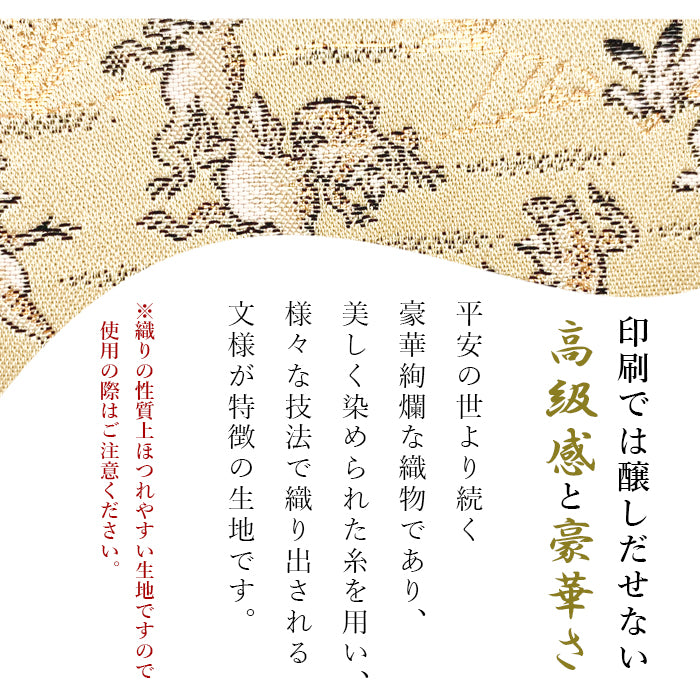 印刷では醸しだせない
高級感と豪華さ
平安の世より続く
豪華絢爛な織物であり、
美しく染められた糸を用い、
様々な技法で織り出される
文様が特徴の生地です。
※織りの性質上ほつれやすい生地ですので
使用の際はご注意ください。